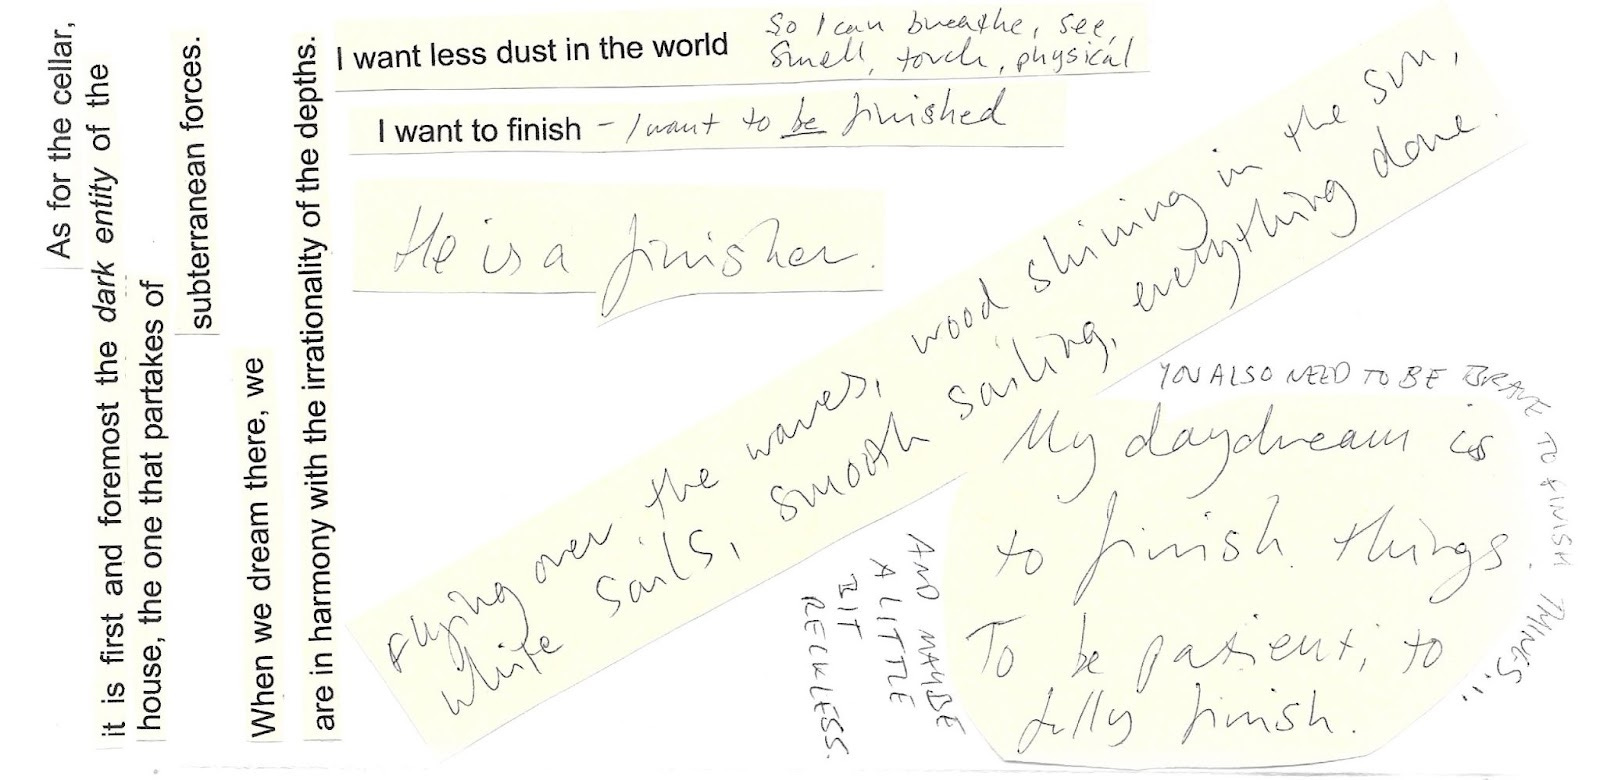 As for the cellar,
it is first and foremost the dark entity of the
house, the one that partakes of
subterranean forces.
When we dream there, we
are in harmony with the irrationality of the depths.
I want less dust in the world
So I can breathe, see,
smell, touch, physical
I want to finish - I want to be finished
He is a finisher.
Flying over the waves, wood shining in the sun,
white sails, smooth sailing, everything done.
YOU ALSO NEED TO BE BRAVE TO FINISH THINGS...
My daydream is
to finish things.
To be patient, to
fully finish.
AND MAYBE
A LITTLE
BIT
RECKLESS.